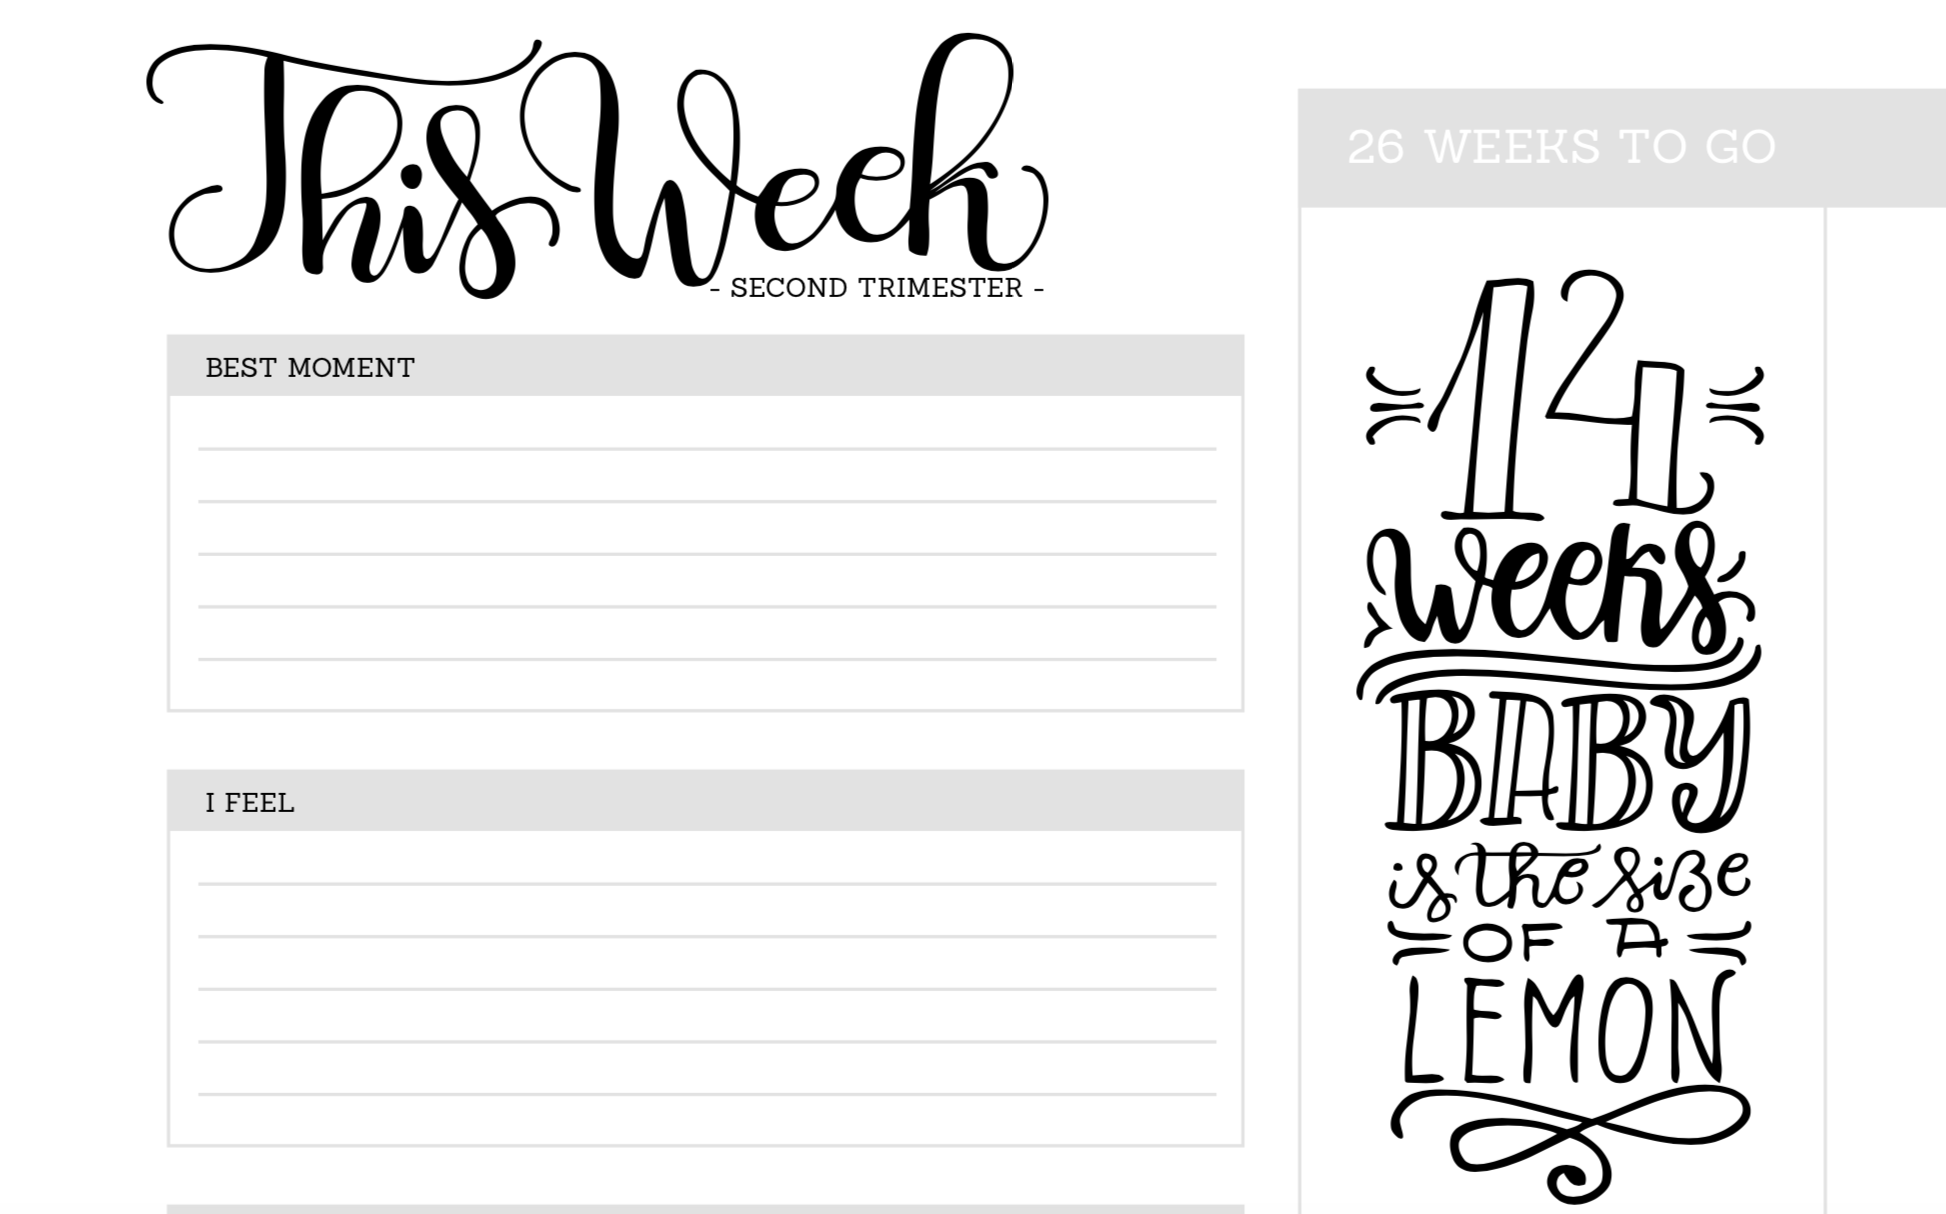 This Week
- SECOND TRIMESTER -
BEST MOMENT
I FEEL
26 WEEKS TO GO
14
weeks
BABY
is the size
OF A
LEMON